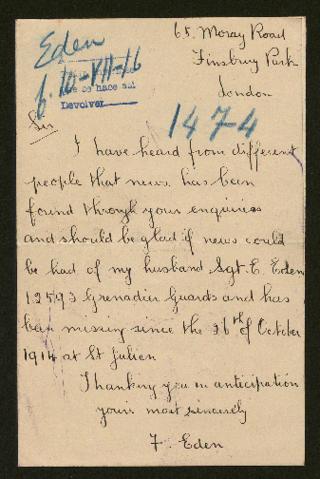 65 Moray Road
Finsbury Park
London
Eden
6. 10-VII-16
se hace
Devolver
1474
Sir
I have heard from different
people that news has been
found through your enquiries
and should be glad if news could
be had of my husband Sgt. E. Eden
12593 Grenadier Guards and has
been missing since the 26th of October
1914 at St Julien
Thanking you in anticipation
yours most sincerely
F. Eden